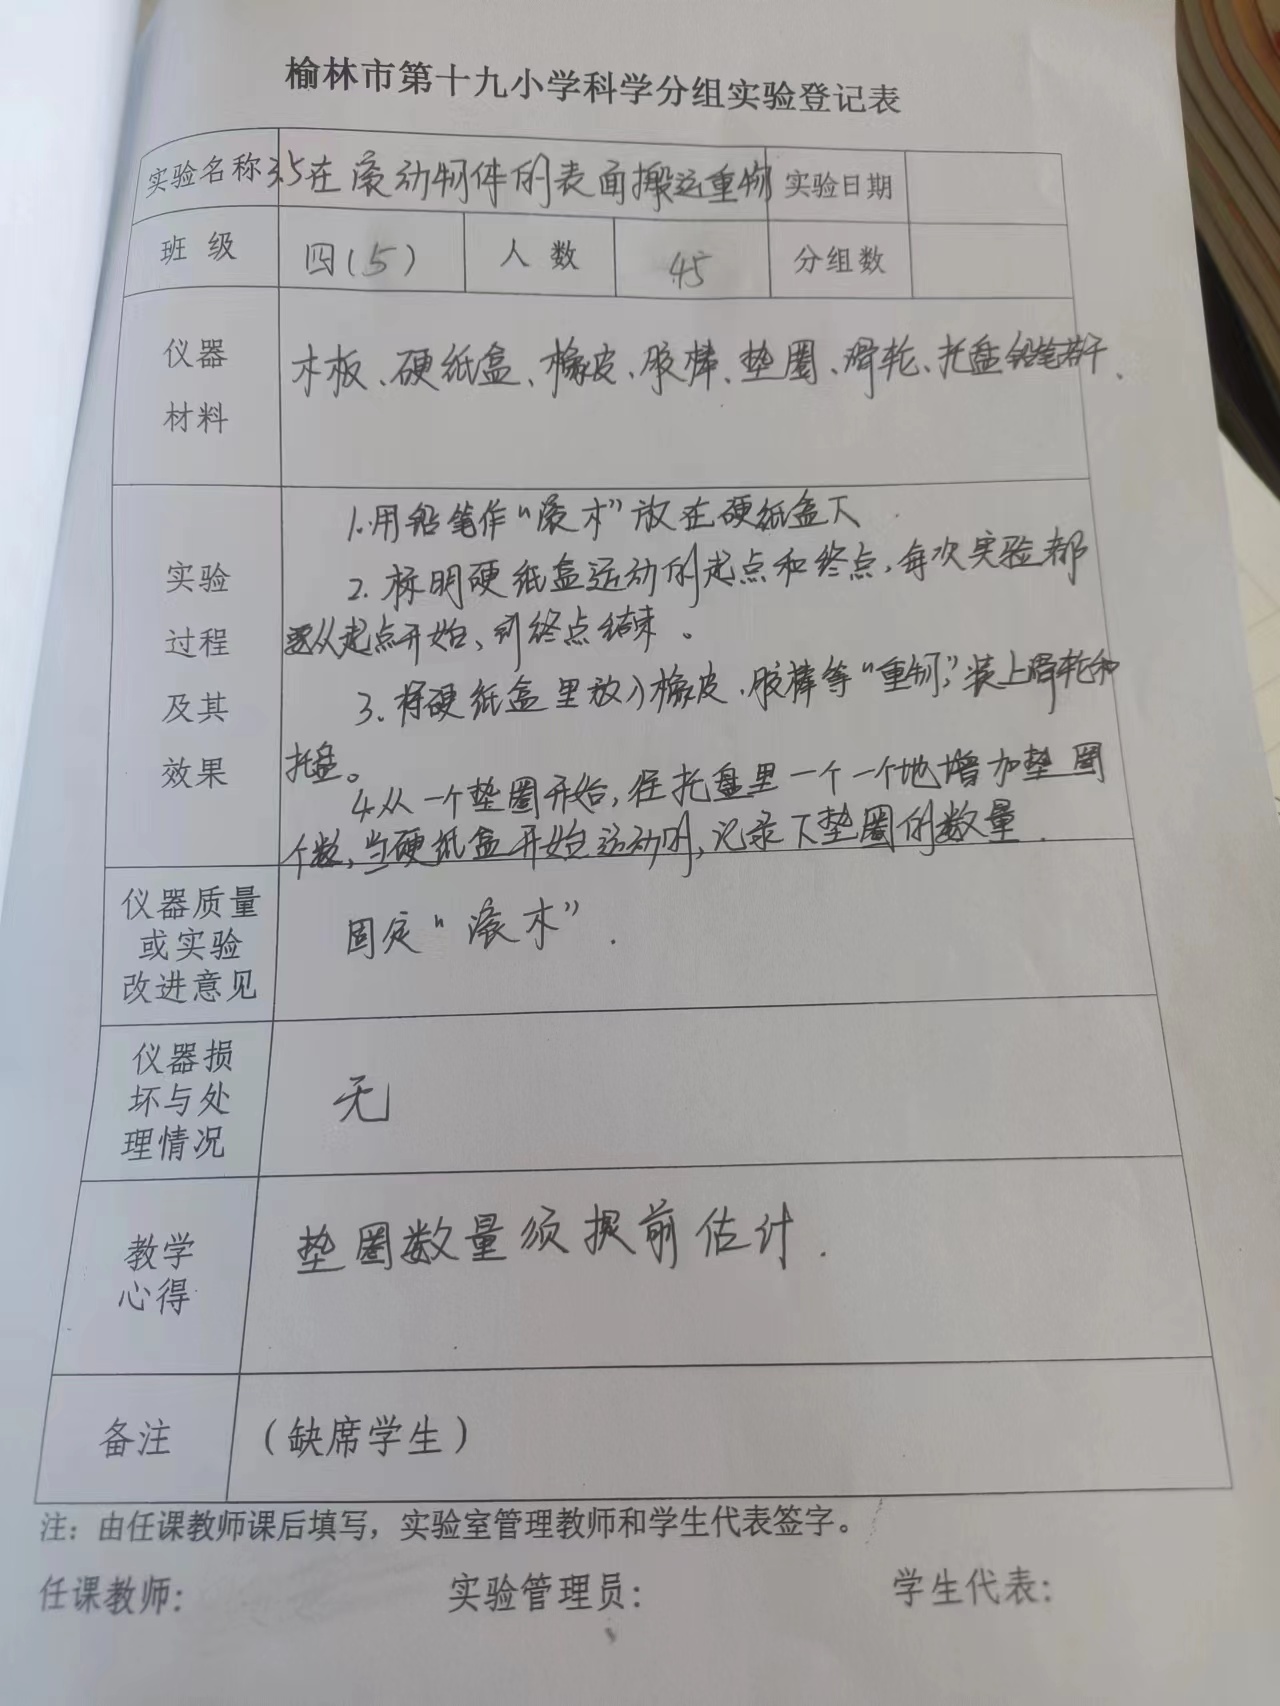 榆林市第十九小学科学分组实验登记表
实验名称 3.5在滚动物件的表面搬运重物 实验日期
班 级 四(5) 人 数 45 分组数
仪器
材料
木板、硬纸盒、橡皮、胶棒、垫圈、滑轮、托盘铅笔若干、
实验
过程
及其
效果
1.用铅笔作“滚木”放在硬纸盒下.
2.标明硬纸盒运动的起点和终点,每次实验都
要从起点开始、到终点结束。
3.将硬纸盒里放入橡皮、胶棒等“重物”,装上滑轮和
托盘。
4.从一个垫圈开始,往托盘里一个一个地增加垫圈
个数,当硬纸盒开始运动时,记录下垫圈的数量.
仪器质量
或实验
改进意见
固定“滚木”.
仪器损
坏与处
理情况
无
教学
心得
垫圈数量须提前估计.
备注 (缺席学生)
注:由任课教师课后填写,实验室管理教师和学生代表签字。
任课教师: 实验管理员: 学生代表: